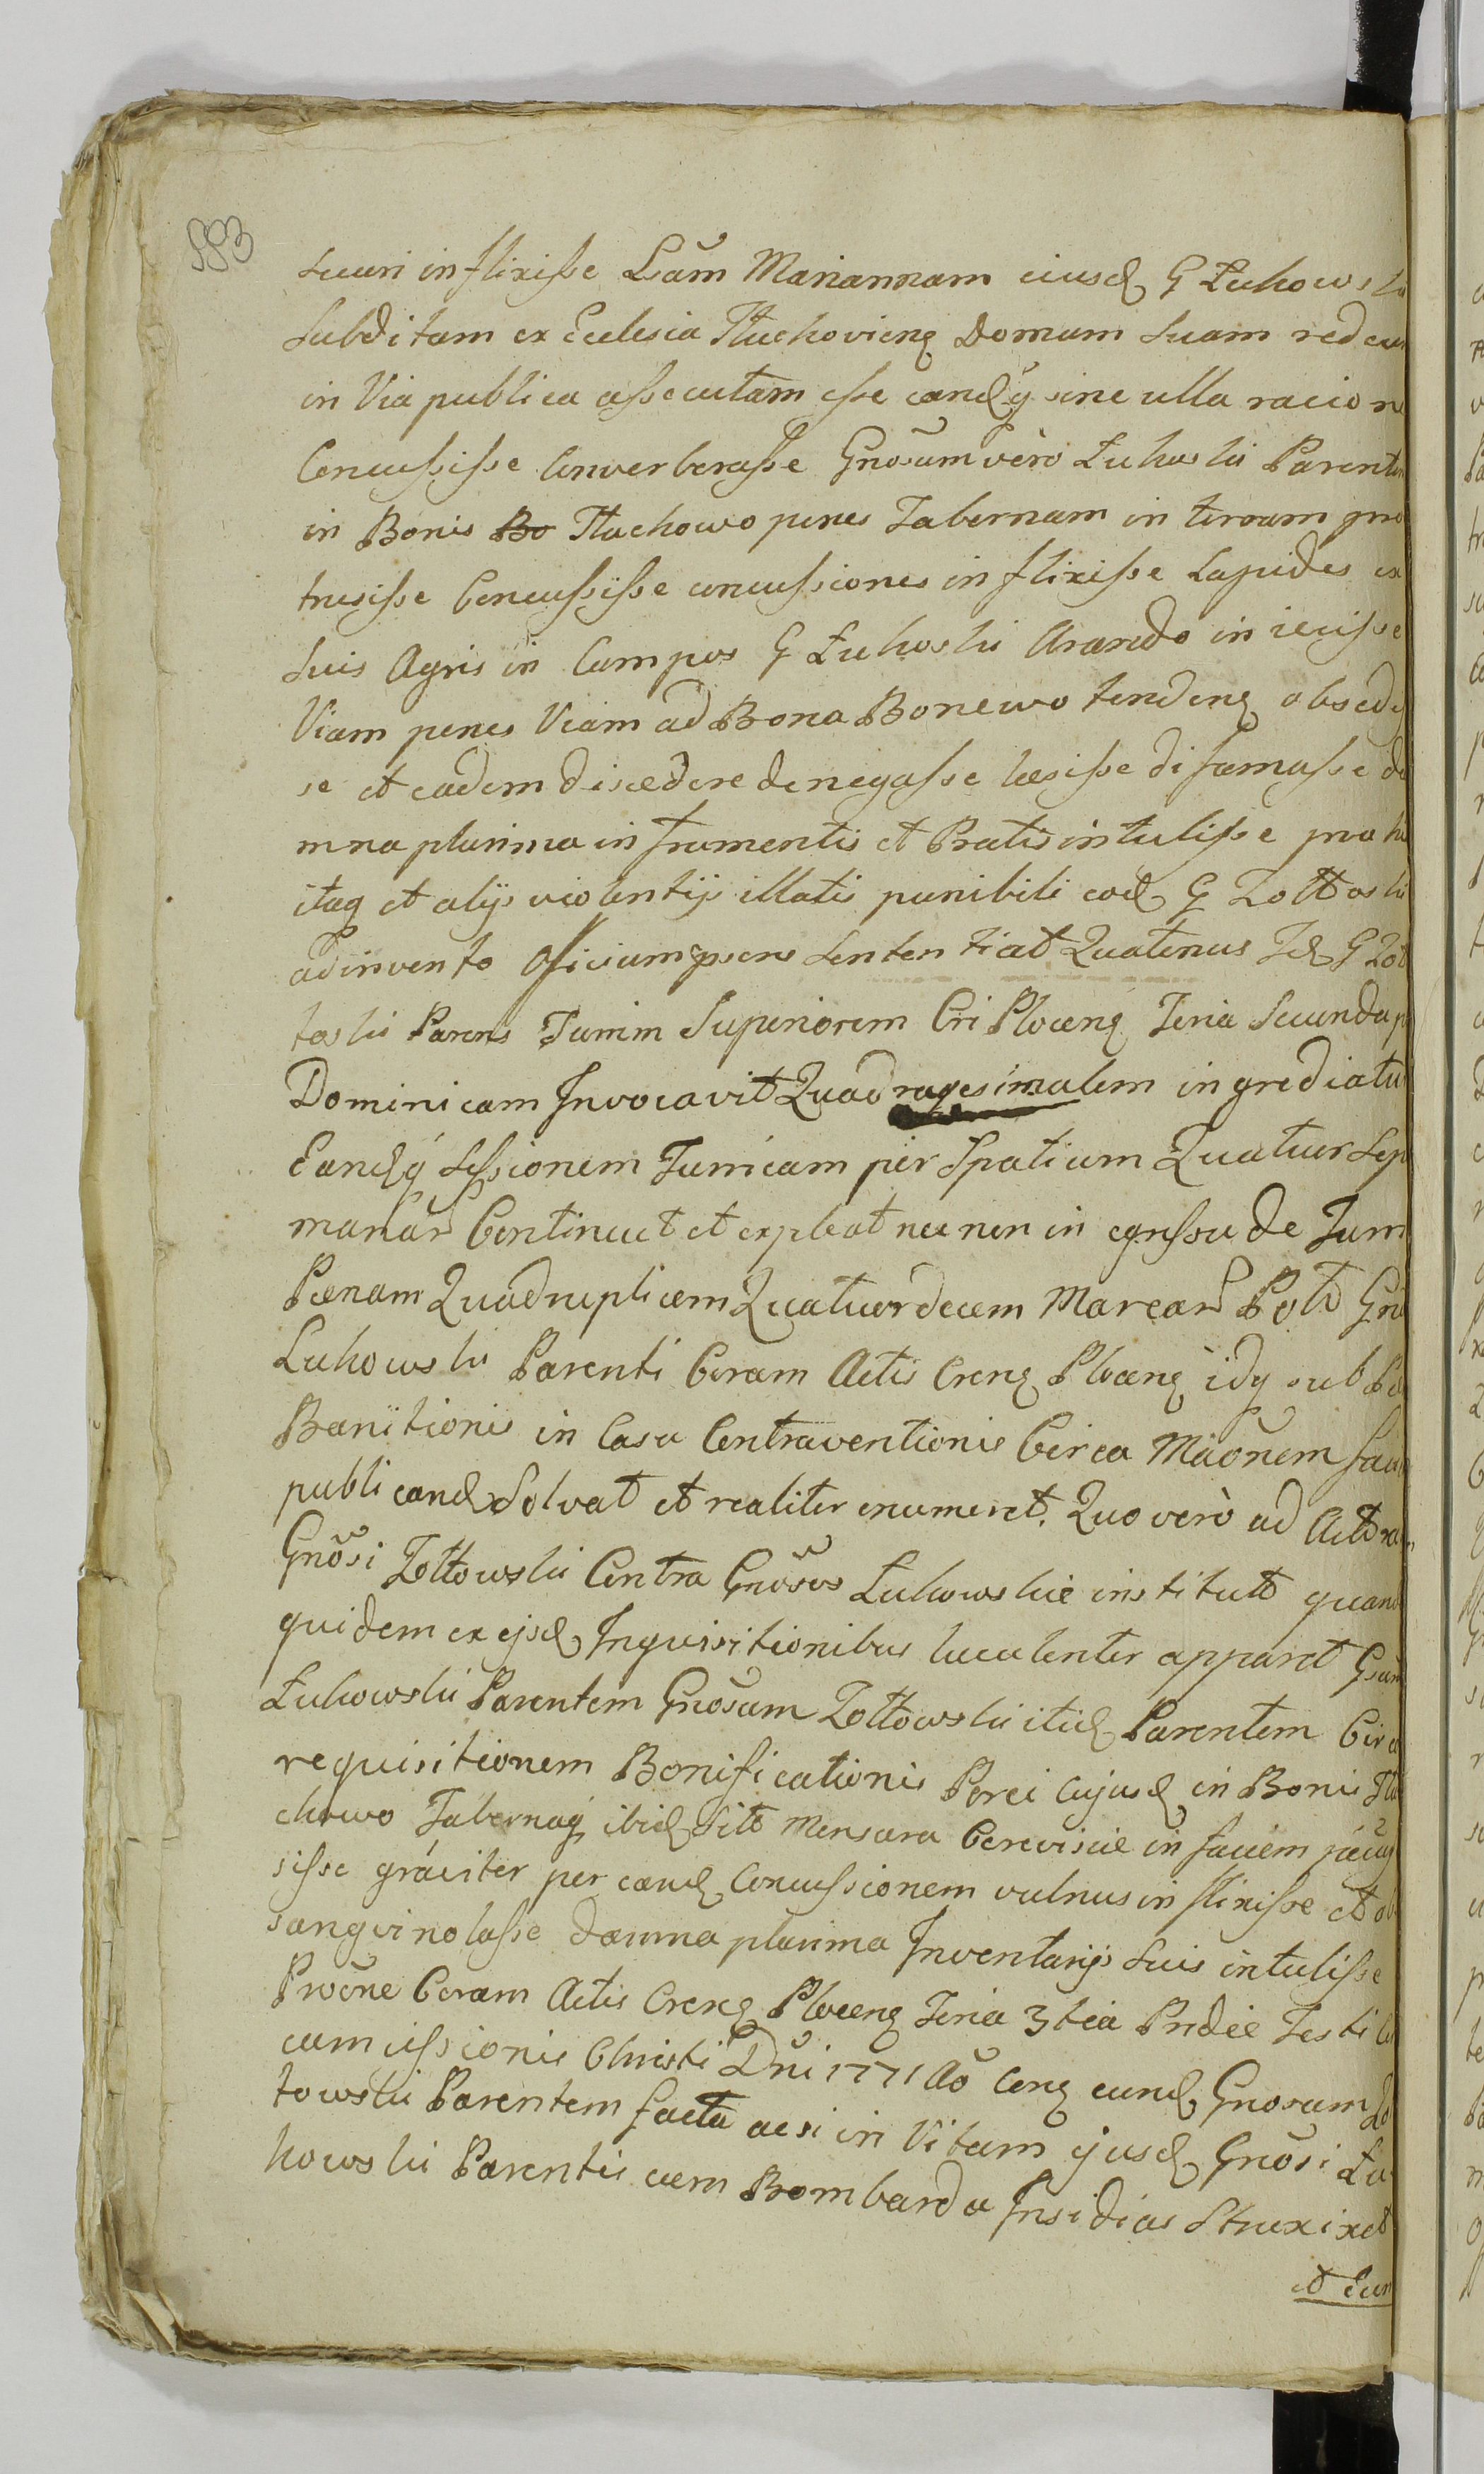 553
Securi inflixisse Lãm Mariannam eiusd G Łukowski
Subditam ex Ecclesia Tłuchovieng Domum Suam redeun
in Via publica assecutam esse eandq sine ulla racione
Concussisse Converberasse Gnõsum vèrò Łukoski Parentem
in Bonis Bo Tłuchowo penes Tabernam in terram pro
trusisse Concussisse concussiones inflixisse Lapides ex
Suis Agris in Campos G Łukoski Arando iniecisse
Viam penes Viam ad Bona Bonewo tendeng obsedis
se et eadem discedere denegasse læsisse difamasse da
mna plurima in frumentis et Pratis intulisse pro
itaq et alijs violentijs illatis punibili eod G Zołtoski
adinvento Officium psens Sententiat Quatenus Id G Zoł
toski Parens Turrim Superiorem Cri Ploceng Feria Secunda p
Dominicam Invocavit Quadragesimalem ingrediatur
Eandq Sessionem Turricam per Spatium Quatuor Sep
manar Continuet et expleat nec non in egressu de Turri
Pœnam Quadruplicem Quatuordecem Marcar Pold Gn
Lukowski Parenti Coram Actis Creng Ploceng idq sub Pœ
Banitionis in Casu Contraventionis Circa Mãonem
publicand Solvat et realiter enumeret. Quo verò ad Action
Gnõsi Zołtowski Contra Gnõsos Łukowskie institut quan
quidem ex ejsd Inquisitionibus luculenter apparet Gsum
Łukowski Parentem Gnõsum Zołtowski itid Parentem Circa
requisitionem Bonificationis Porci Cujusd in Bonis Tłu
chowo Tabernaq ibid Sit Mensura Cerevisiæ in faciem
sisse graviter per eand Concussionem vulnus inflixisse et ob
sangvinolasse damna plurima Inventarijs Suis intulisse
Proẽne Coram Actis Creng Ploceng Feria 3tia Pridie Festi Cir
cumcissionis Christi Dnĩ 1771 Aõ Ceng eund Gnosum Zo
towski Parentem facta ac si in Vitam ejusd Gnõsi Łu
kowski Parentis cum Bombarda Insidias Struxixet
et Eun